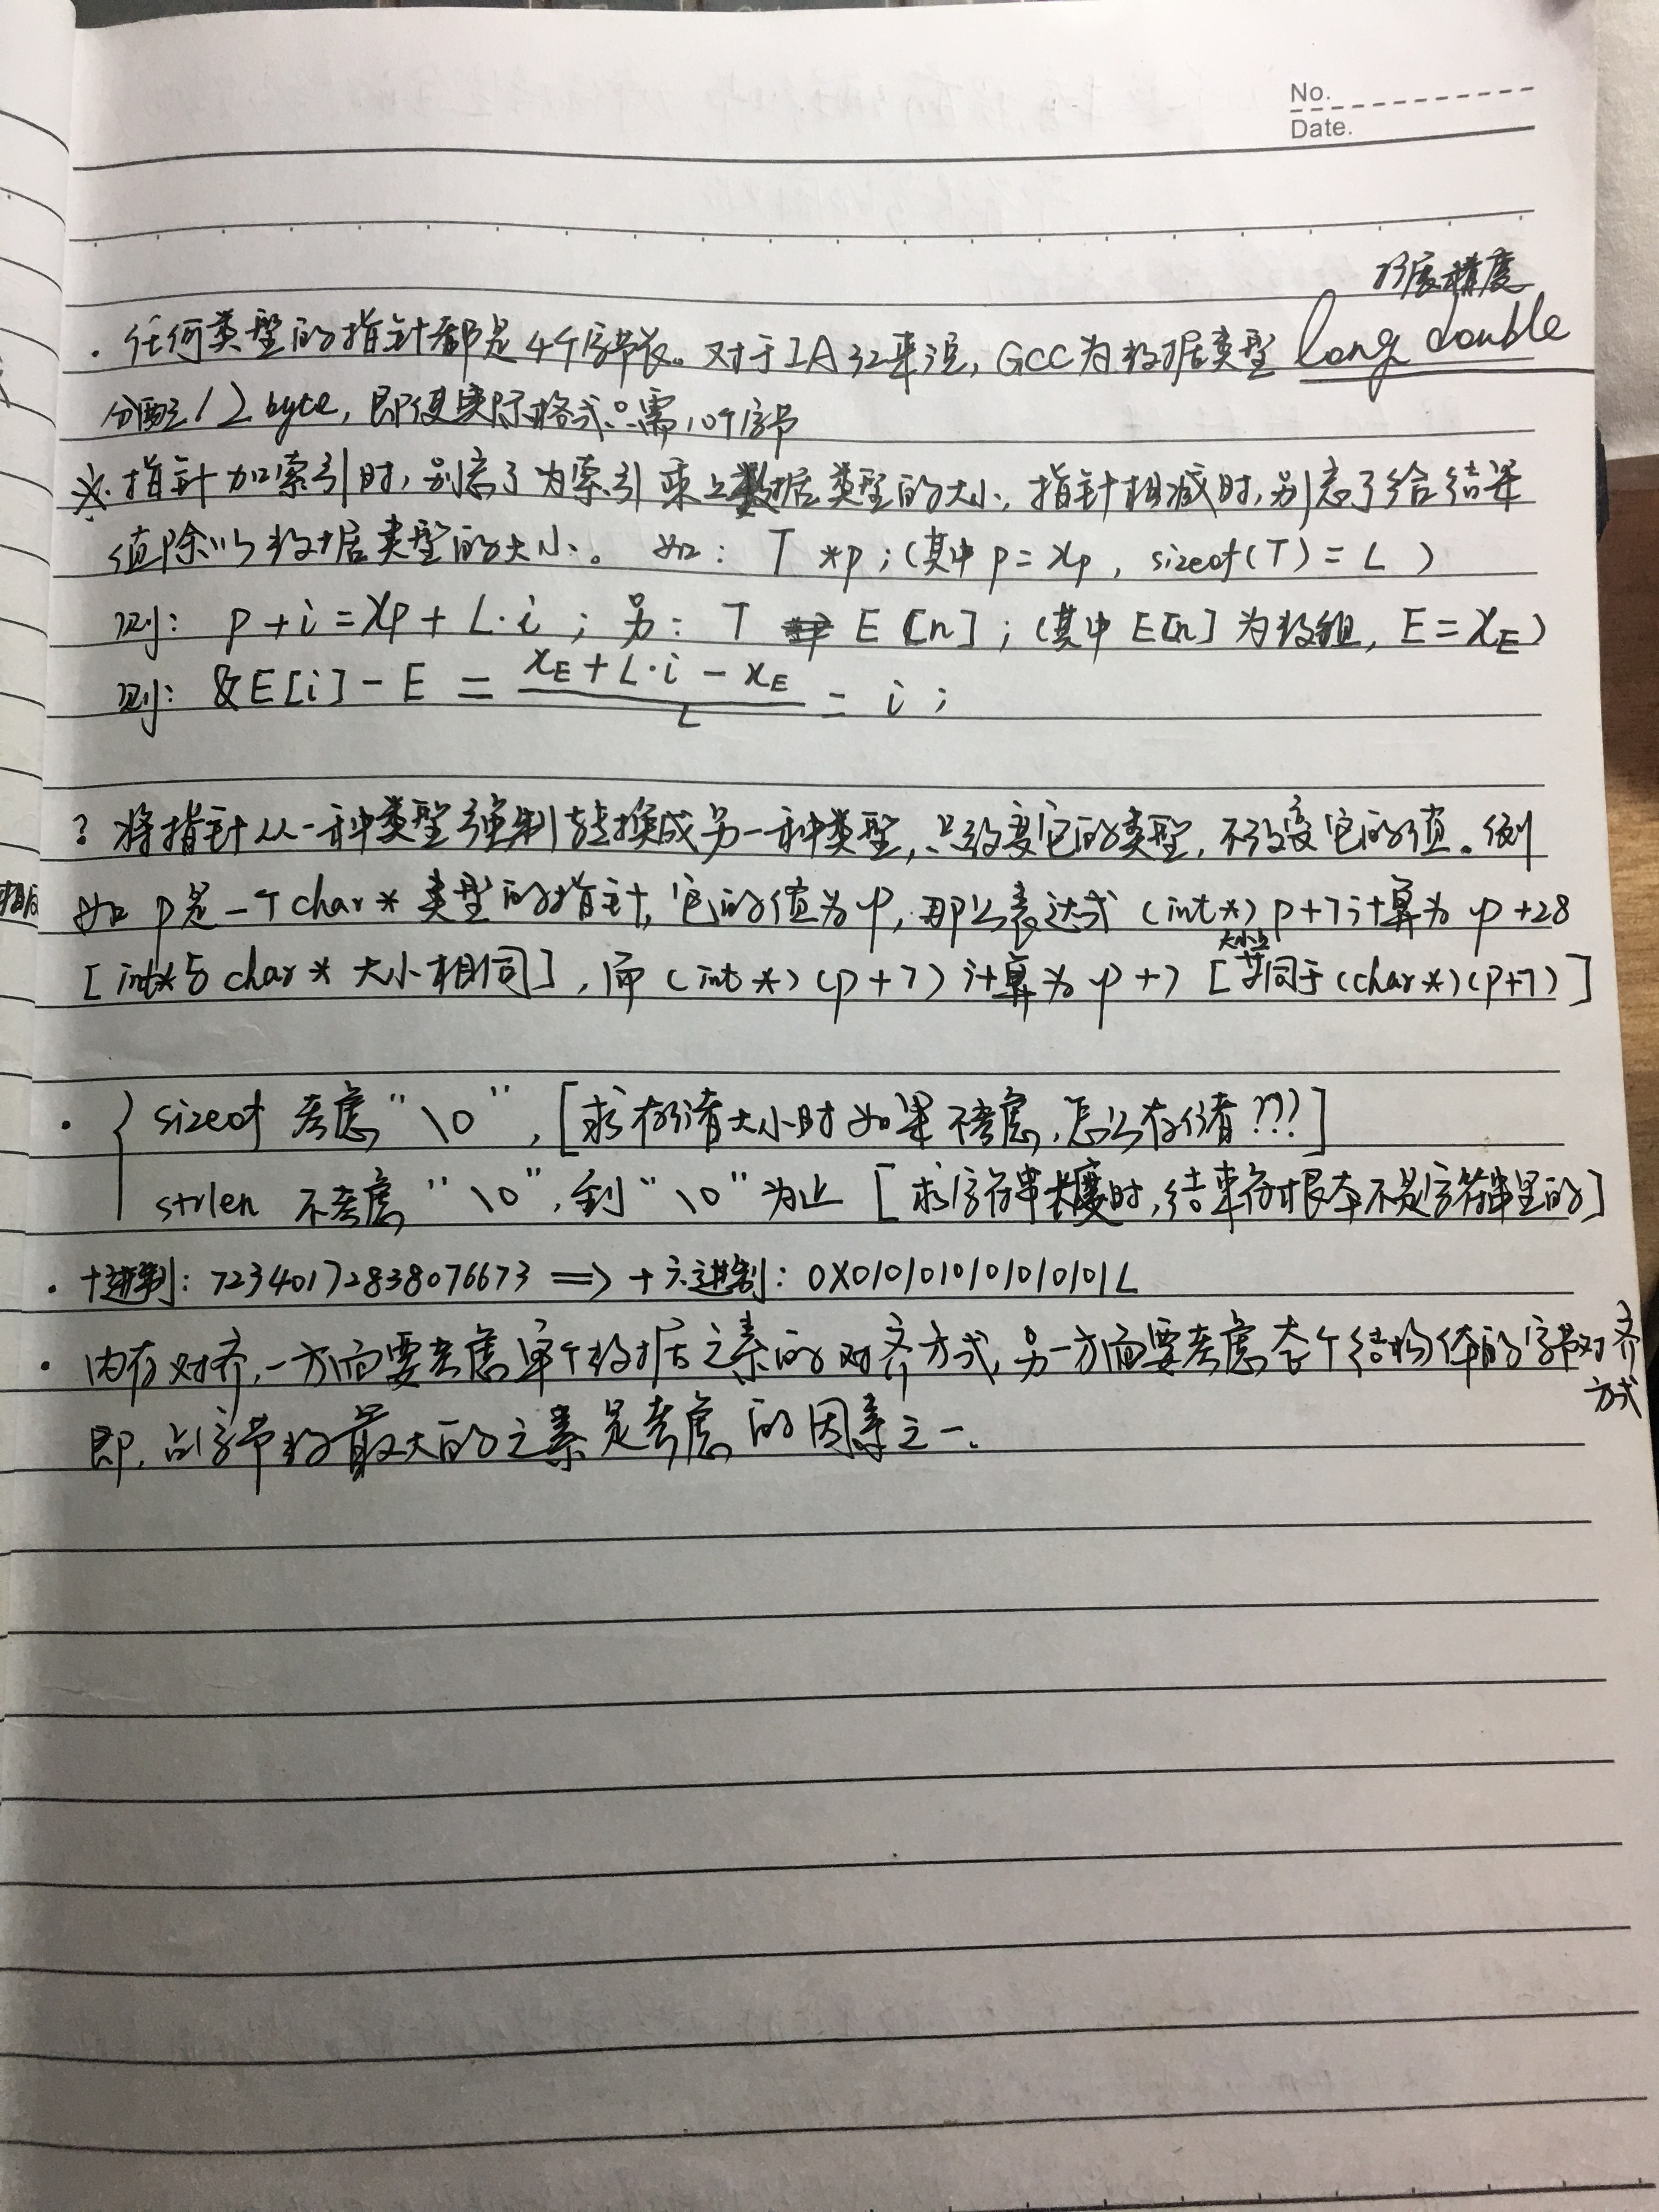 No.
Date.
扩展精度
· 任何类型的指针都是4个字节长。对于IA32来说, GCC为数据类型 long double
分配 12 byte, 即使实际格式只需10个字节
※. 指针加索引时, 别忘了为索引乘上数据类型的大小, 指针相减时, 别忘了给结果
值除以数据类型的大小。 如: T *p; (其中 p = xp, sizeof(T) = L )
则: p + i = xp + L·i ; 另: T E [n] ; (其中 E[n] 为数组, E = xE)
则: &E[i] - E = (xE + L·i - xE) / L = i ;
? 将指针从一种类型强制转换成另一种类型, 只改变它的类型, 不改变它的值。例
如 p是一个char * 类型的指针, 它的值为p, 那么表达式 (int*) p+7计算为 p+28
[int*与 char * 大小相同], 而 (int *) (p + 7) 计算为 p + 7 [大小上等同于 (char *) (p+7) ]
· { sizeof 考虑 "\0", [求存储大小时如果不考虑, 怎么存储???]
strlen 不考虑 "\0", 到 "\0" 为止 [求字符串长度时, 结束符根本不是字符串里的]
· 十进制: 72340172838076673 => 十六进制: 0X0101010101010101L
· 内存对齐, 一方面要考虑单个数据元素的对齐方式, 另一方面要考虑整个结构体的字节对齐
方式
即, 占字节数最大的元素是考虑的因素之一.